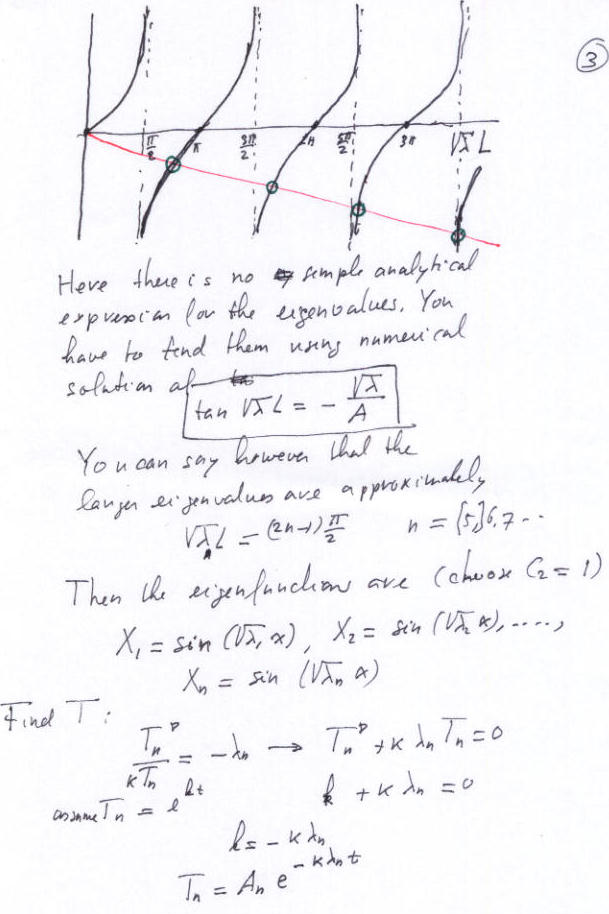 3
π/2 π 3π/2 2π 5π/2 3π √λ L
Here there is no simple analytical
expression for the eigenvalues. You
have to find them using numerical
solution of
tan √λ L = - √λ/A
You can say however that the
larger eigenvalues are approximately
√λ L = (2n-1) π/2 n = [5,]6,7..
Then the eigenfunctions are (choose C₂ = 1)
X₁ = sin (√λ₁ x), X₂ = sin (√λ₂ x), ....,
Xₙ = sin (√λₙ x)
Find T:
Tₙ'/κTₙ = -λₙ → Tₙ' + κ λₙ Tₙ = 0
assume Tₙ = e^{kt} k + κ λₙ = 0
k = -κλₙ
Tₙ = Aₙ e^{-κλₙt}